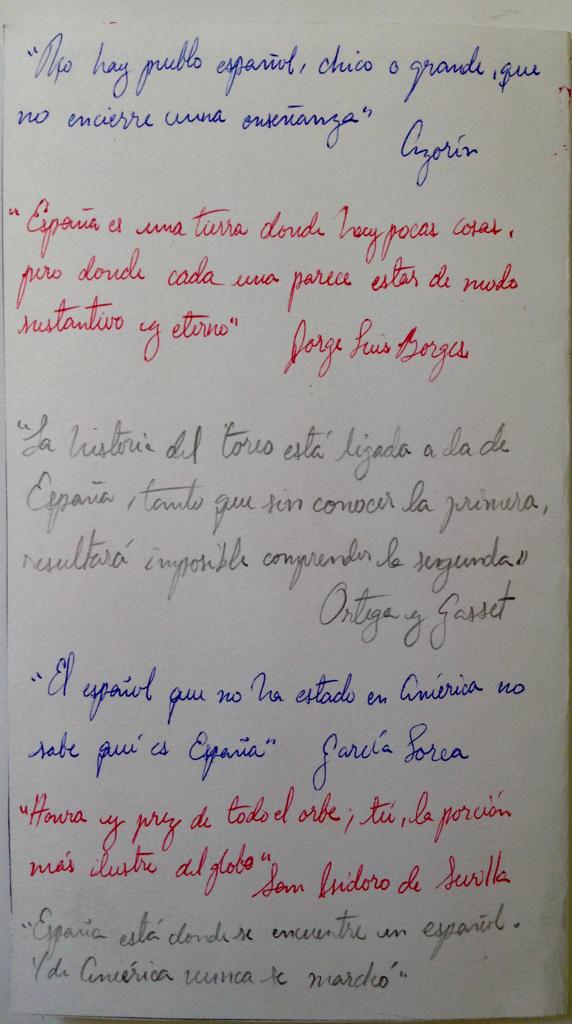 "No hay pueblo español, chico o grande, que
no encierre una enseñanza"
Azorín
"España es una tierra donde hay pocas cosas,
pero donde cada una parece estar de modo
sustantivo y eterno"
Jorge Luis Borges
"La historia del toreo está ligada a la de
España, tanto que sin conocer la primera,
resultará imposible comprender la segunda"
Ortega y Gasset
"El español que no ha estado en América no
sabe qué es España" García Lorca
"Honra y prez de todo el orbe; tú, la porción
más ilustre del globo"
San Isidoro de Sevilla
"España está donde se encuentre un español.
Y de América nunca se marchó"